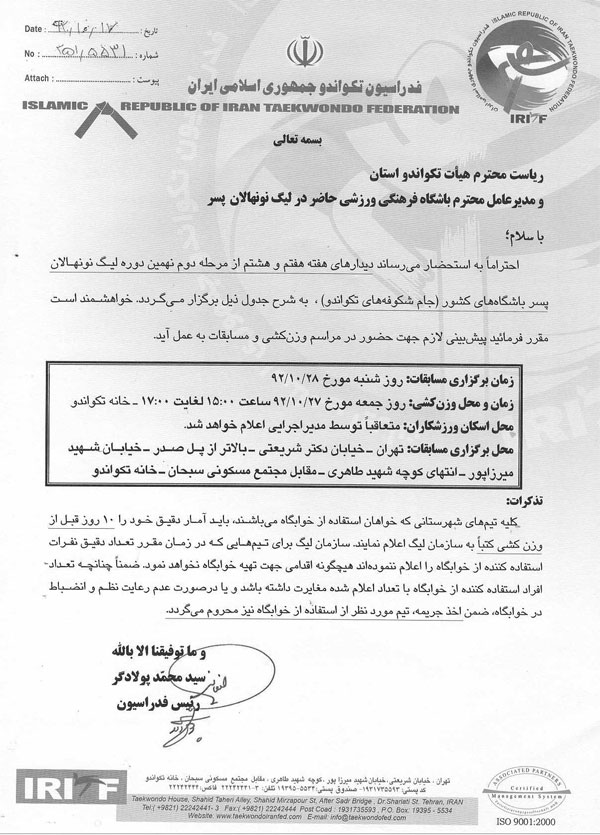 تاریخ : ۹۲/۱۰/۱۷ Date :
شماره : ۲۵۱/۵۵۳۱ No :
پیوست : Attach :
فدراسیون تکواندو جمهوری اسلامی ایران
ISLAMIC REPUBLIC OF IRAN TAEKWONDO FEDERATION
ISLAMIC REPUBLIC OF IRAN TAEKWONDO FEDERATION
فدراسیون تکواندو جمهوری اسلامی ایران
IRITF
بسمه تعالی
ریاست محترم هیأت تکواندو استان
و مدیرعامل محترم باشگاه فرهنگی ورزشی حاضر در لیگ نونهالان پسر
با سلام؛
احتراماً به استحضار می‌رساند دیدارهای هفته هفتم و هشتم از مرحله دوم نهمین دوره لیگ نونهالان
پسر باشگاه‌های کشور (جام شکوفه‌های تکواندو) ، به شرح جدول ذیل برگزار می‌گردد. خواهشمند است
مقرر فرمائید پیش‌بینی لازم جهت حضور در مراسم وزن‌کشی و مسابقات به عمل آید.
زمان برگزاری مسابقات: روز شنبه مورخ ۹۲/۱۰/۲۸
زمان و محل وزن‌کشی: روز جمعه مورخ ۹۲/۱۰/۲۷ ساعت ۱۵:۰۰ لغایت ۱۷:۰۰ - خانه تکواندو
محل اسکان ورزشکاران: متعاقباً توسط مدیراجرایی اعلام خواهد شد.
محل برگزاری مسابقات: تهران - خیابان دکتر شریعتی - بالاتر از پل صدر - خیابان شهید
میرزاپور - انتهای کوچه شهید طاهری - مقابل مجتمع مسکونی سبحان - خانه تکواندو
تذکرات:
کلیه تیم‌های شهرستانی که خواهان استفاده از خوابگاه می‌باشند، باید آمار دقیق خود را ۱۰ روز قبل از
وزن کشی کتباً به سازمان لیگ اعلام نمایند. سازمان لیگ برای تیم‌هایی که در زمان مقرر تعداد دقیق نفرات
استفاده کننده از خوابگاه را اعلام ننموده‌اند هیچگونه اقدامی جهت تهیه خوابگاه نخواهد نمود. ضمناً چنانچه تعداد-
افراد استفاده کننده از خوابگاه با تعداد اعلام شده مغایرت داشته باشد و یا درصورت عدم رعایت نظم و انضباط
در خوابگاه، ضمن اخذ جریمه، تیم مورد نظر از استفاده از خوابگاه نیز محروم می‌گردد.
و ما توفیقنا الا بالله
سید محمّد پولادگر
رئیس فدراسیون
IRITF
تهران ، خیابان شریعتی، خیابان شهید میرزا پور ، کوچه شهید طاهری ، مقابل مجتمع مسکونی سبحان ، خانه تکواندو
کد پستی: ۱۹۳۱۷۳۵۵۹۳ - صندوق پستی: ۵۵۳۴-۱۹۳۹۵ تلفن: ۳-۲۲۲۴۲۴۴۱ فاکس: ۲۲۲۴۲۴۴۴
Taekwondo House, Shahid Taheri Alley, Shahid Mirzapour St, After Sadr Bridge , Dr.Shariati St. Tehran, IRAN
Tel:(+9821) 22242441- 3 Fax:(+9821) 22242444 Post Coad : 1931735593 , P.O. Box: 19395 - 5534
Website: www.taekwondoiranfed.com E-mail: info@taekwondoiranfed.com
ASSOCIATED PARTNERS
Certified
Management System
ISO 9001:2000